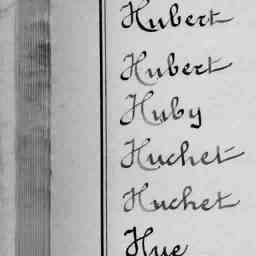 Hubert
Hubert
Huby
Huchet
Huchet
Hue